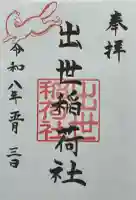 奉拝
出世稲荷社
出世
稲荷社
令和八年 正月 三日